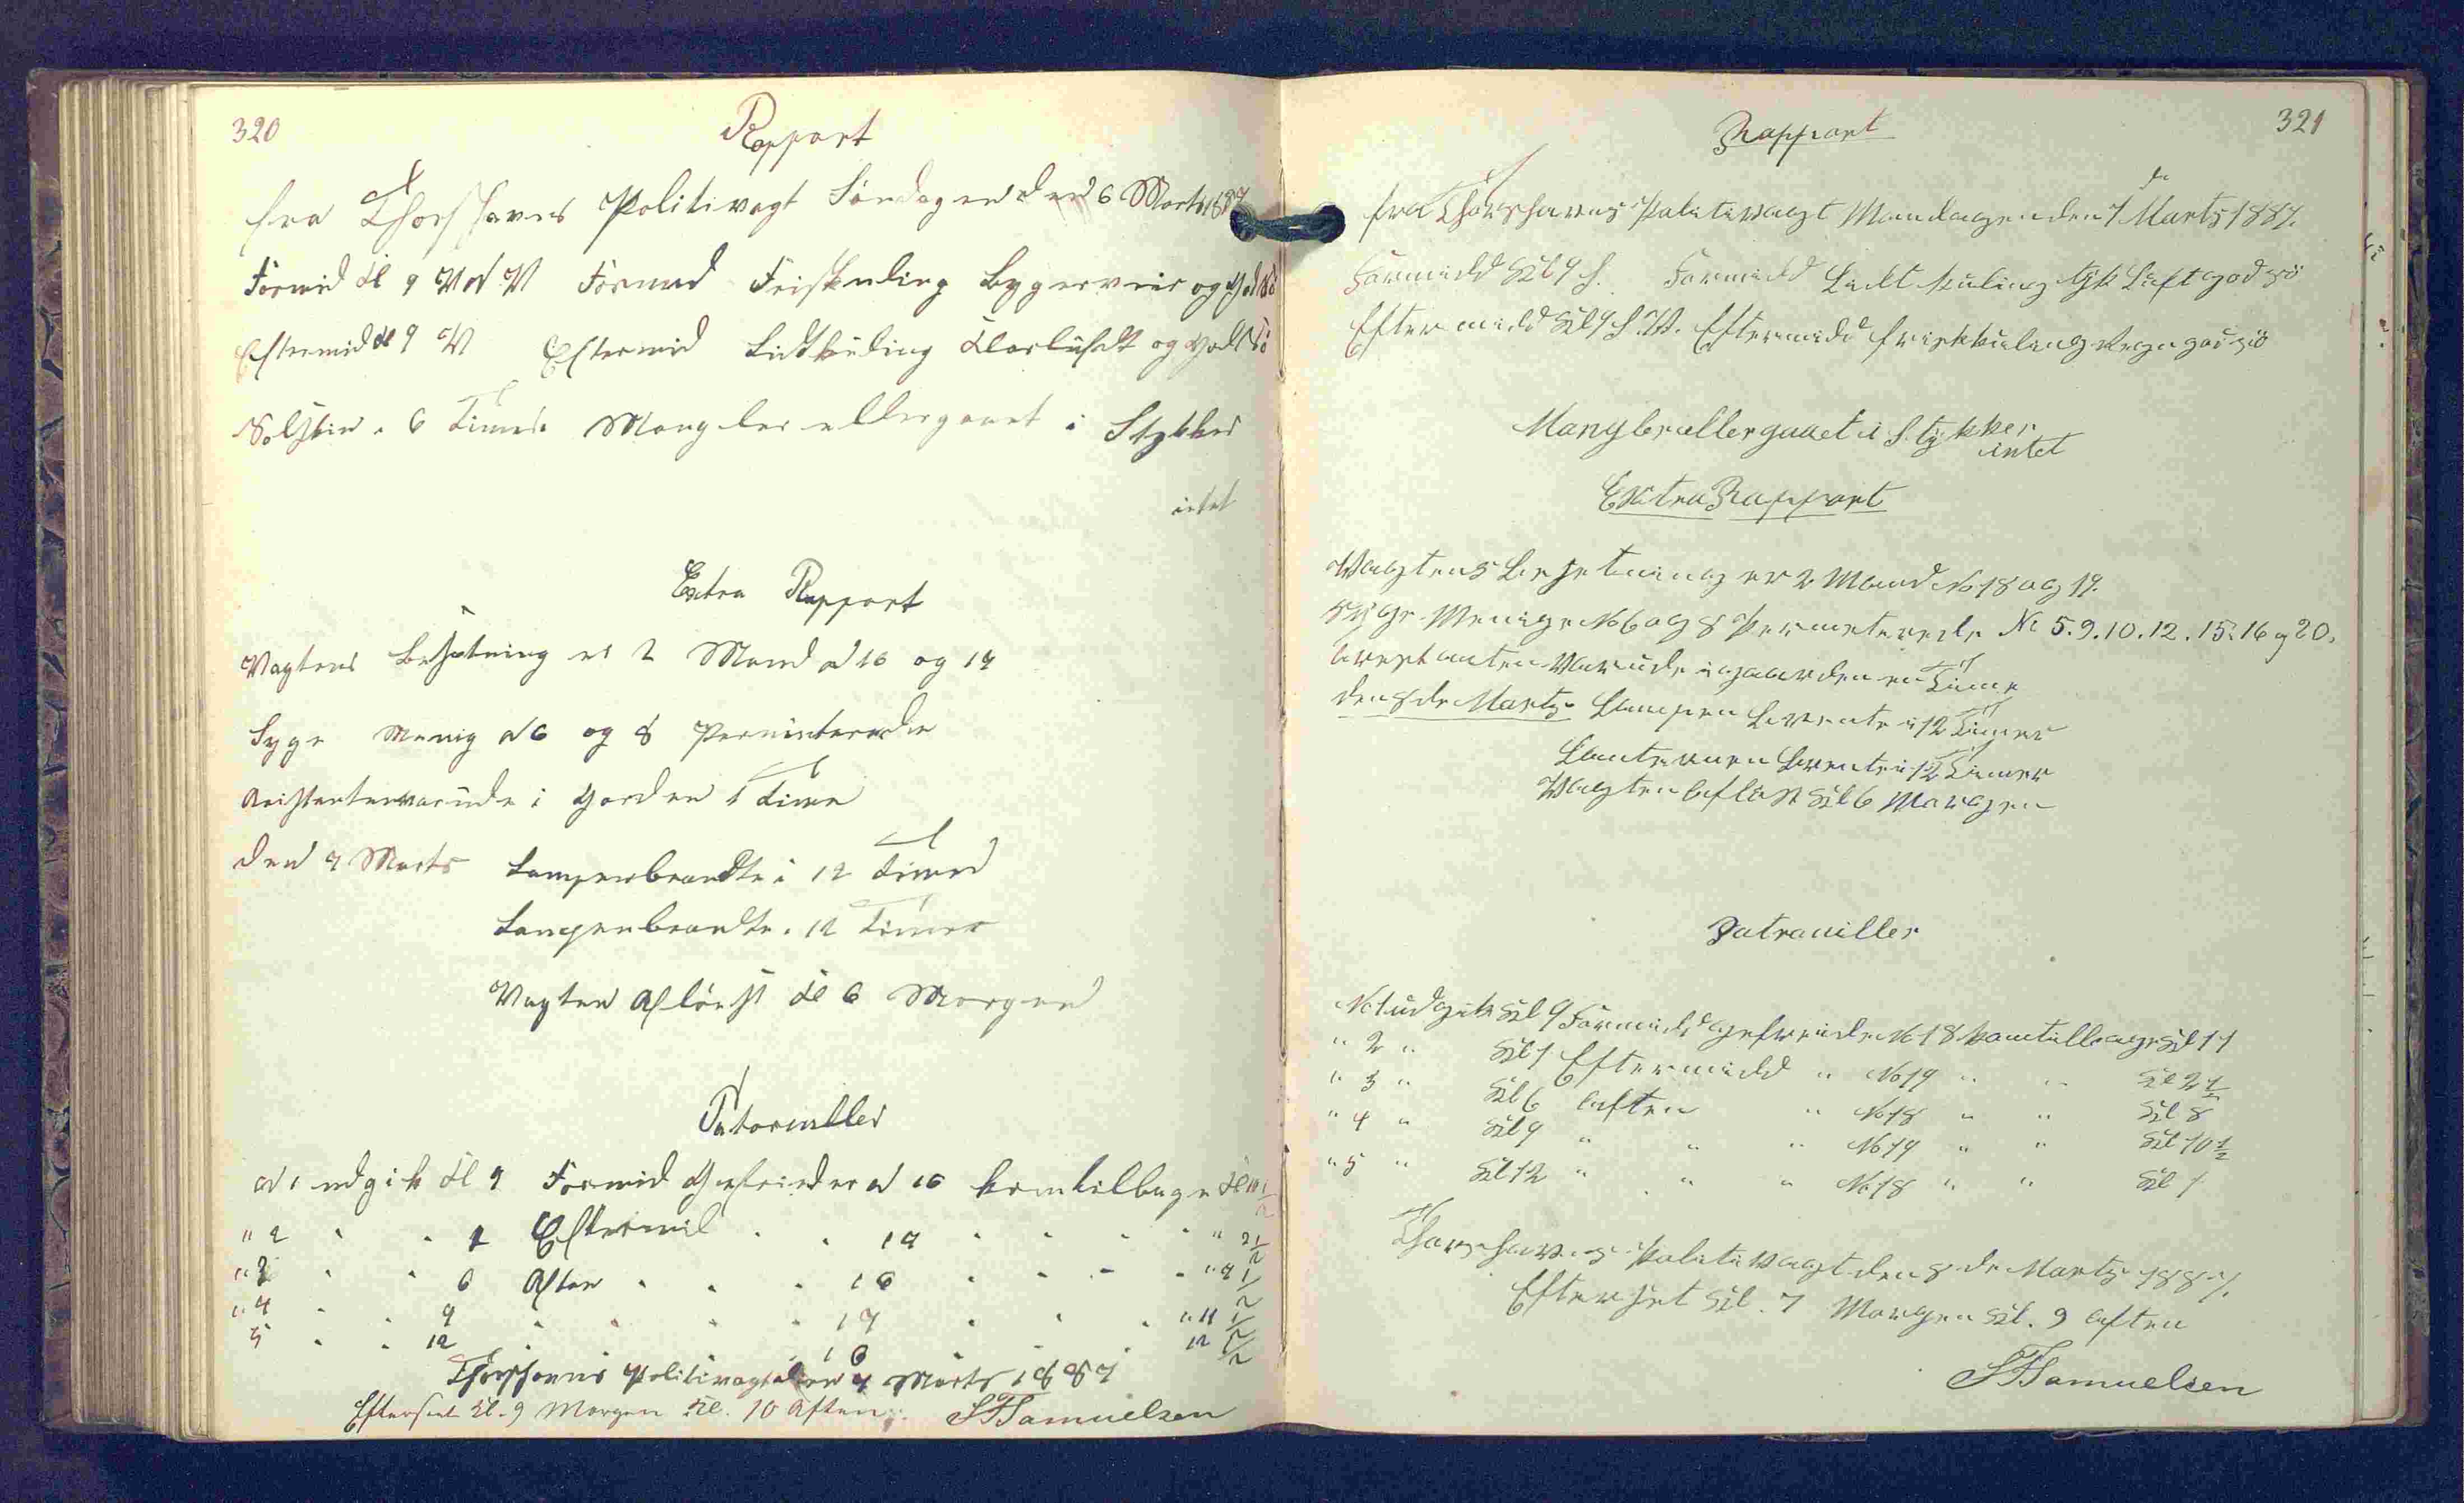 320
Rapport
fra Thorshavns Politivagt Søndagen den 6 Marts 1887
Formid Kl 9 V Formid Friskuling Bygerveir og God Sø
Eftermid Kl 9 V Eftermid Lidtkuling Klarluft og God Sø
Solskin i 6 Timer Mangler ellergaaet i Stykker
intet
Extra Rapport
Vagtens Besætning er 2 Mand N 16 og 17
Syge Menig N 6 og 8 Permiterede
Aristanter var ude i Gorden 1 Time
den 7 Marts Lampen brændte i 12 Timer
Lampen brændte i 12 Timer
Vagten Afløst Kl 6 Morgen
Patrouiller
N 1 udgik Kl 9 Formid Gefrieder N 16 kom tilbage Kl 10 1/2
" 2 " " 1 Eftermid " " 17 " " " " 2 1/2
" 3 " " 6 Aften " " " 16 " " " " 7 1/2
" 4 " " 9 " " " " 17 " " " 11 1/2
5 " " 12 " " " 16 " " 12 1/2
Thorshavns Politivagt den 7 Marts 1887
Efterset Kl. 9 Morgen Kl. 10 Aften. SFSamuelsen
321
Rapport
fra Thorshavns Politivagt Mandagen den 7 de Marts 1887.
Formidd Kl 9 S. Formidd Lidt kuling tyk Luft god sø
Eftermidd Kl 9 S.V. Eftermidd friskkuling Regn god sø
Mangler ellergaaet i Stykker
intet
Extra Rapport
Vagtens Besetning er 2 Mand No 18 og 19.
Syge Menige No 6 og 8 Permeterede No 5. 9. 10. 12. 15. 16 og 20.
Arestanten Var ude i gaarden en Time
den 8 de Marts Lampen brente i 12 Timer
Lanternen brente i 12 Timer
Vagten Afløst Kl 6 Morgen
Patrouiller
No 1 udgik Kl 9 Formidd Gefreide No 18 kom tilbage Kl 11
" 2 " Kl 1 Eftermidd " No 19 " " Kl 2 1/2
" 3 " Kl 6 Aften " No 18 " " Kl 8
" 4 " Kl 9 " " " No 19 " " Kl 10 1/2
" 5 " Kl 12 " " " No 18 " " Kl 1
Thorshavns Politivagt den 8 de Marts 1887.
Efterset Kl. 7 Morgen Kl. 9 Aften
SFSamuelsen